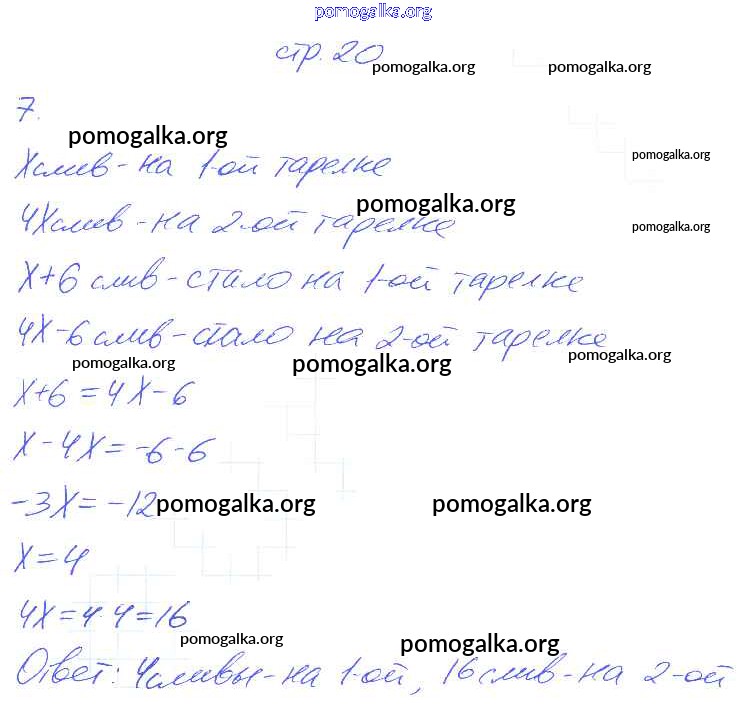 pomogalka.org
стр. 20
pomogalka.org pomogalka.org
7.
pomogalka.org
pomogalka.org
X слив - на 1-ой тарелке
pomogalka.org
4X слив - на 2-ой тарелке
pomogalka.org
X+6 слив - стало на 1-ой тарелке
4X-6 слив - стало на 2-ой тарелке
pomogalka.org pomogalka.org pomogalka.org
X+6=4X-6
X-4X=-6-6
-3X=-12
pomogalka.org pomogalka.org
X=4
4X=4·4=16
pomogalka.org pomogalka.org
Ответ: 4 сливы - на 1-ой, 16 слив - на 2-ой